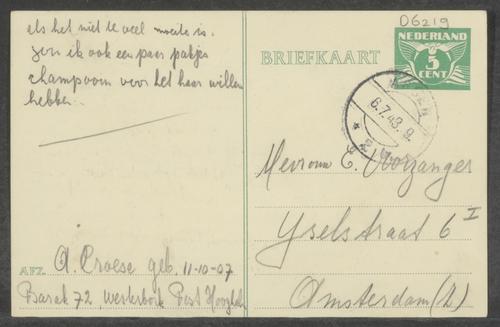 D6219
als het niet te veel moeite is.
zou ik ook een paar pakjes
champoon voor het haar willen
hebben.
BRIEFKAART
NEDERLAND
5
CENT
6.7.43.9.
Mevrouw E. Voorzanger
IJselstraat 6 I
Amsterdam (Z)
AFZ. A. Croese geb. 11-10-07
Barak 72, Westerbork Post Hooghalen